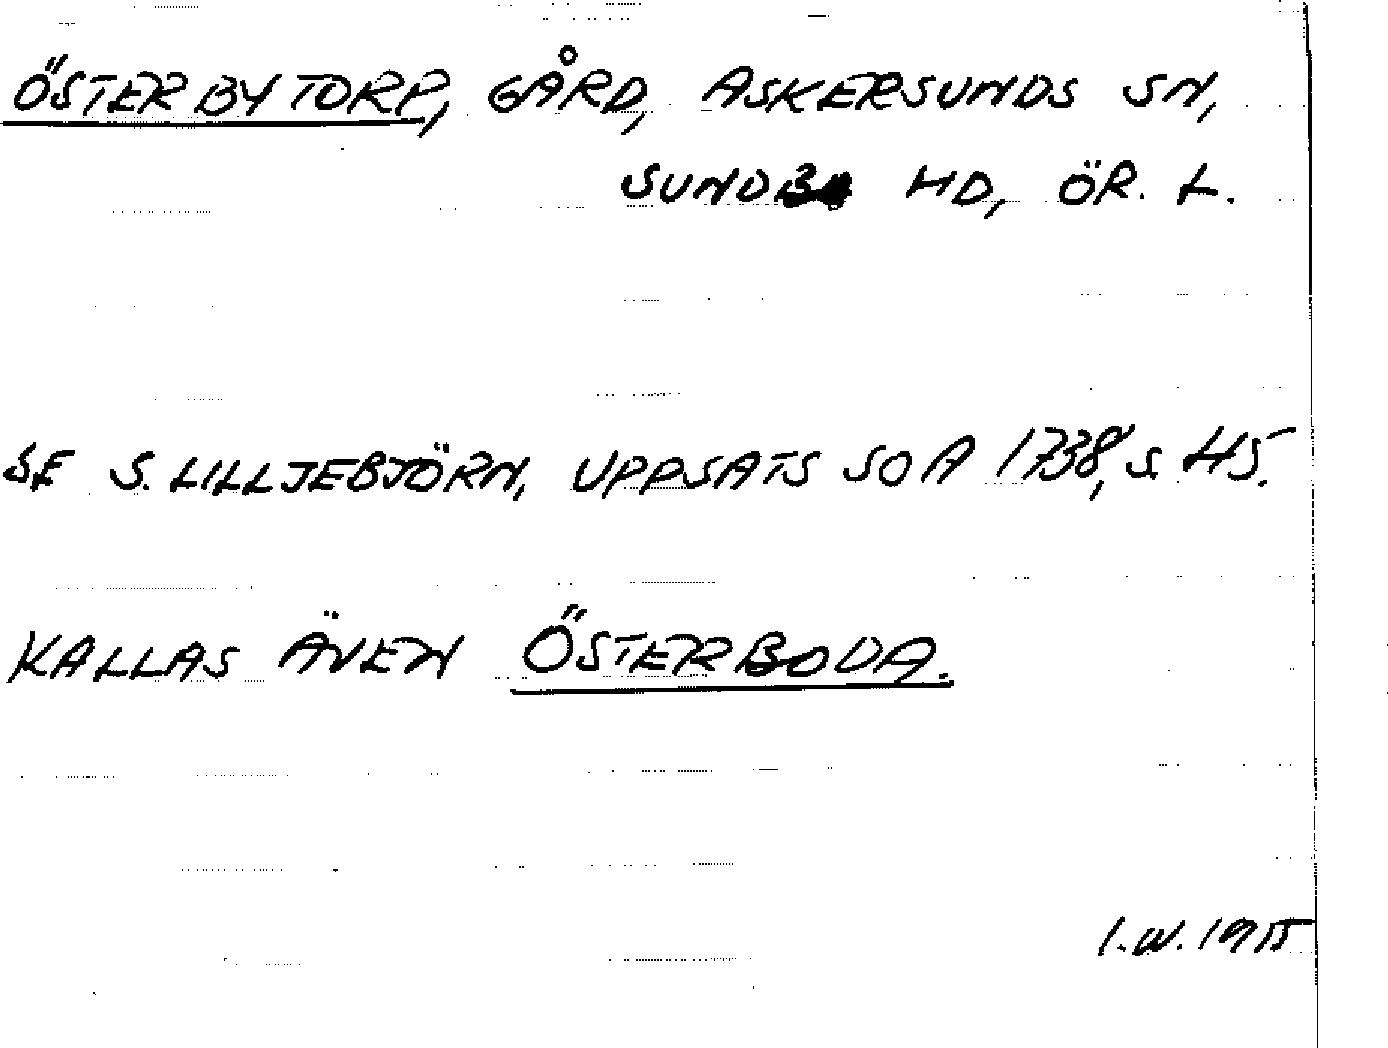 ÖSTERBYTORP, GÅRD, ASKERSUNDS SN,
SUNDBO HD, ÖR. L.
SE S. LILLJEBJÖRN, UPPSATS SOA 1738, S. 45.
KALLAS ÄVEN ÖSTERBODA.
I.W. 1975